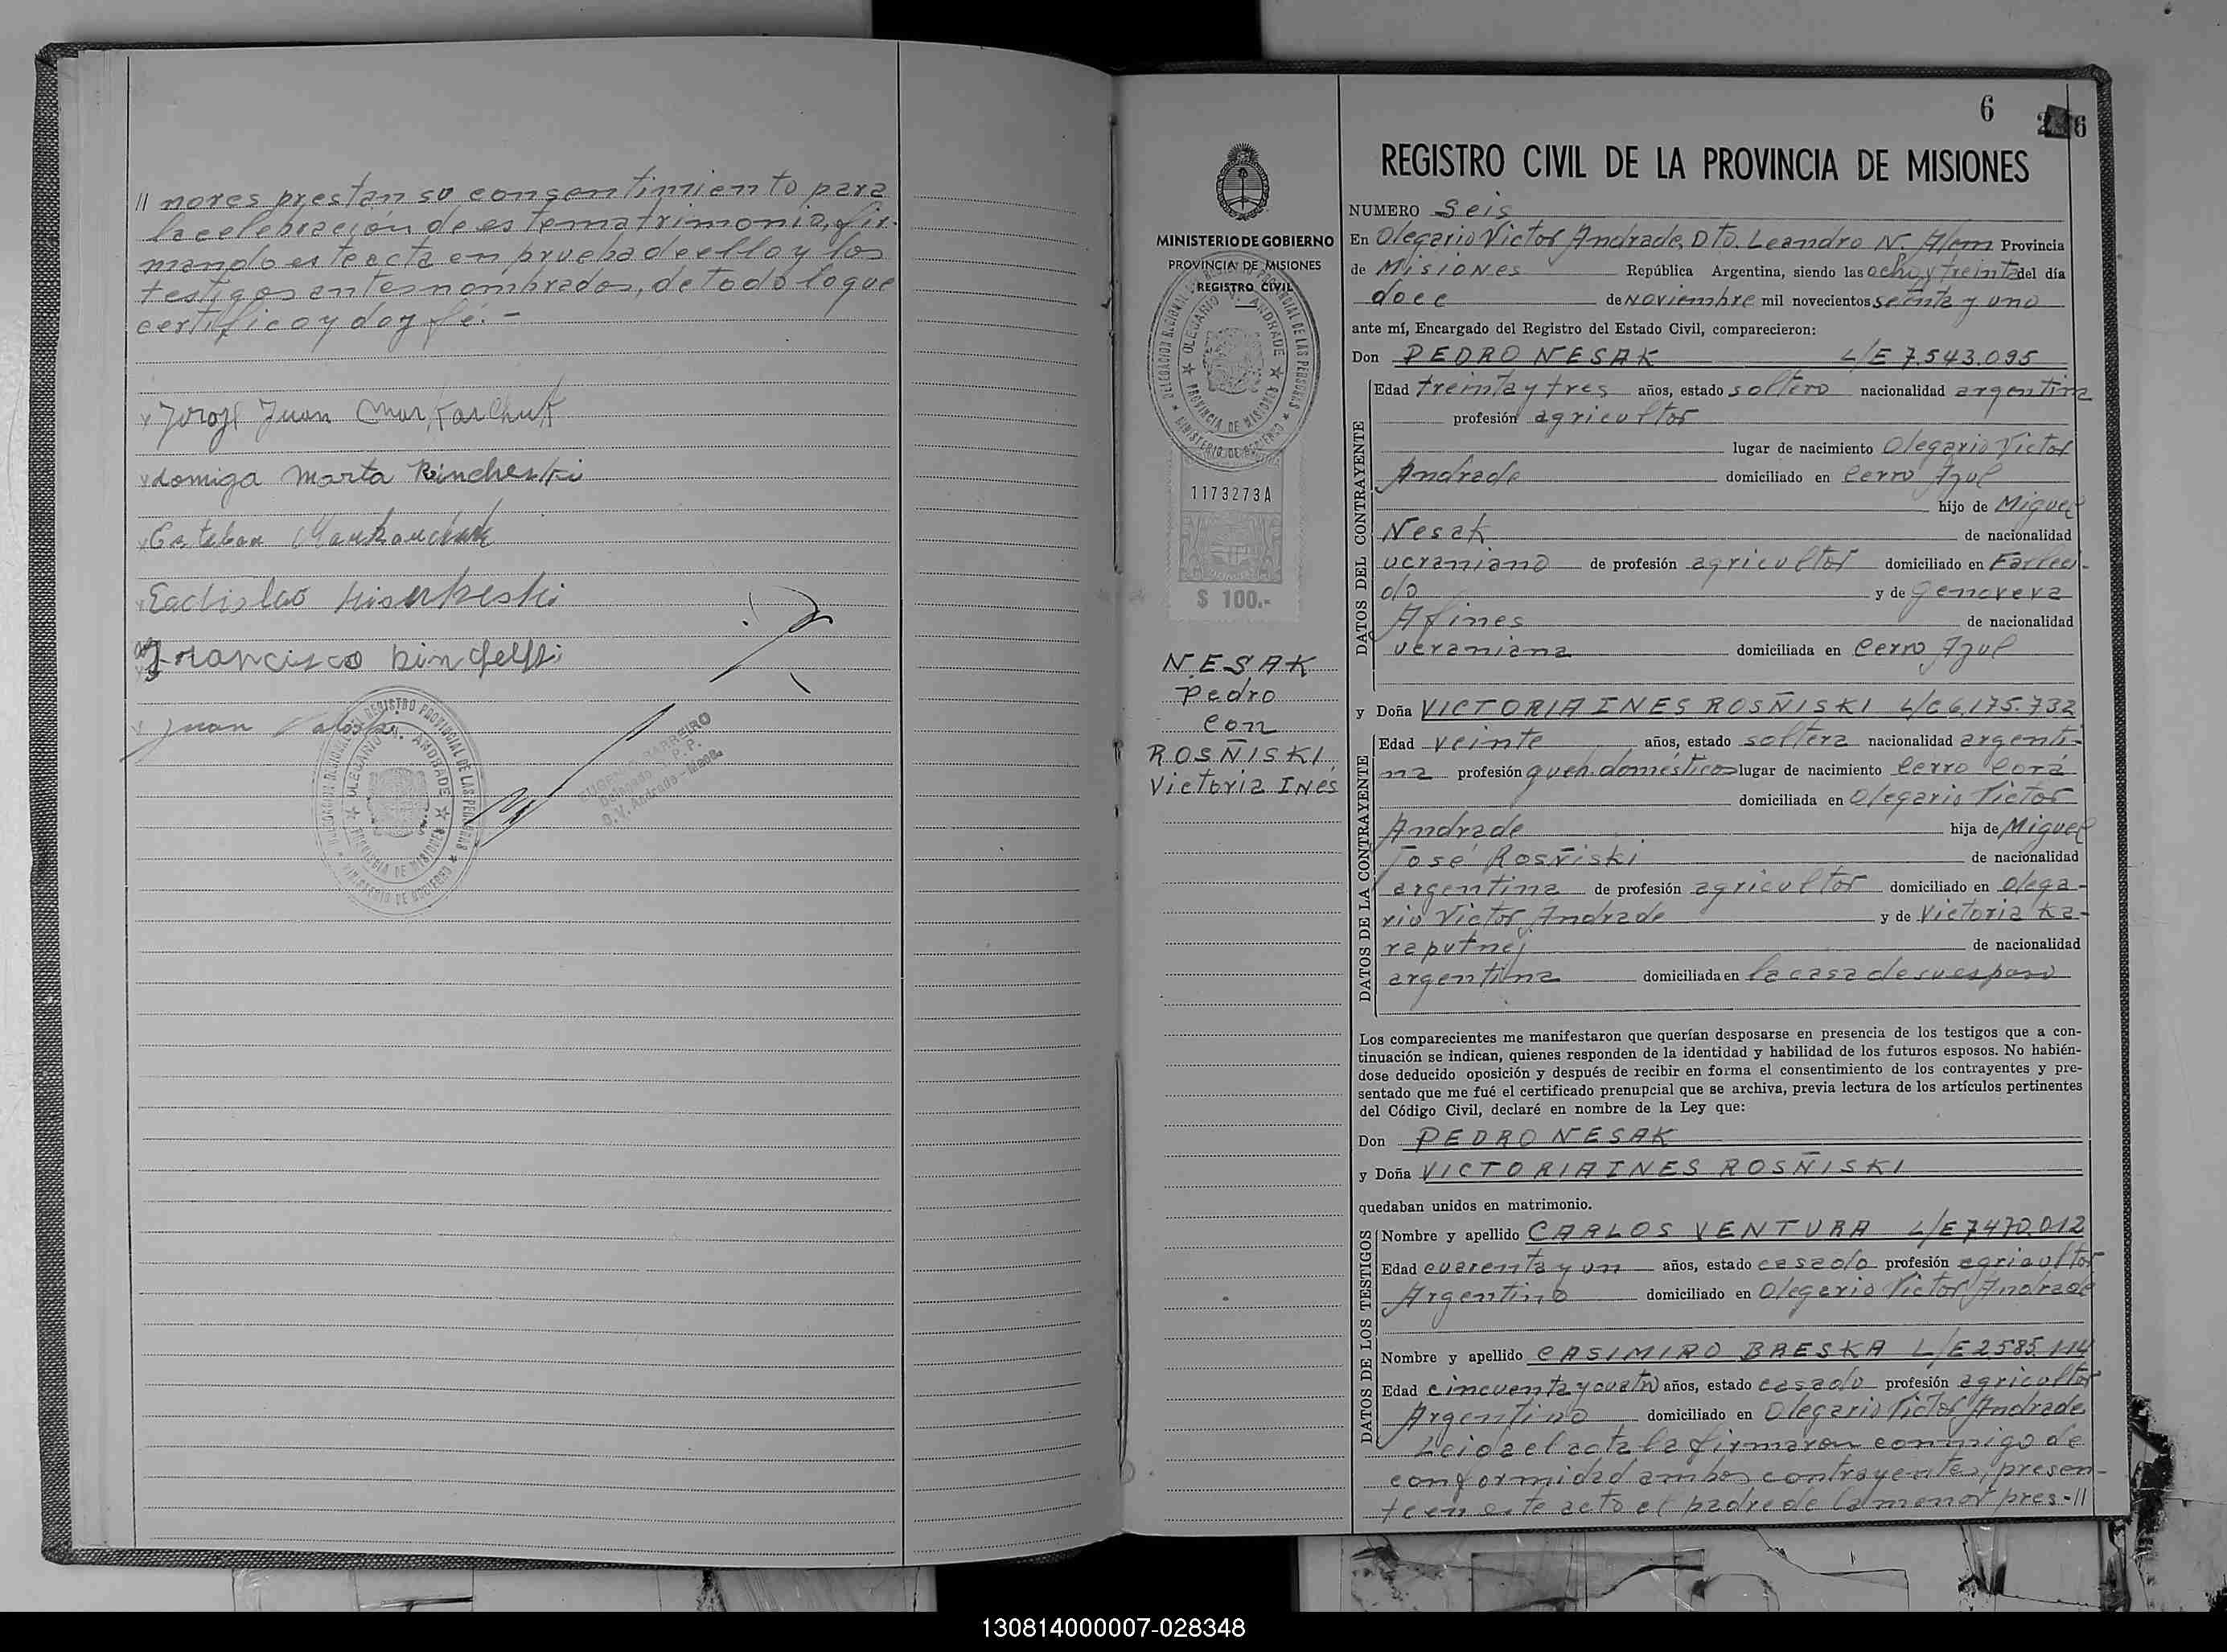 // nores prestan su consentimiento para
la celebración de este matrimonio, fir-
mando este acta en prueba de ello y los
testigos antes nombrados, de todo lo que
certifico y doy fé.-
Juan
Lomiga Marta Kincheski
Esteban
Ladislao
Francisco
Juan
OLEGARIO V. ANDRADE
PROVINCIA DE MISIONES
MINISTERIO DE GOBIERNO
EUGENIO BARREIRO
Delegado R.P.P.
O.V. Andrade - Mnes.
MINISTERIO DE GOBIERNO
PROVINCIA DE MISIONES
REGISTRO CIVIL
OLEGARIO V. ANDRADE
PROVINCIA DE MISIONES
1173273A
$ 100.-
NESAK
Pedro
con
ROSÑISKI,
Victoria INés
6
6
REGISTRO CIVIL DE LA PROVINCIA DE MISIONES
NUMERO Seis
En Olegario Victor Andrade, Dto. Leandro N. Alem Provincia
de MISIONES República Argentina, siendo las ocho y treinta del día
doce de Noviembre mil novecientos setenta y uno
ante mí, Encargado del Registro del Estado Civil, comparecieron:
Don PEDRO NESAK L/E 7.543.095
DATOS DEL CONTRAYENTE
Edad treinta y tres años, estado soltero nacionalidad argentina
profesión agricultor
lugar de nacimiento Olegario Victor
Andrade domiciliado en Cerro Azul
hijo de Miguel
Nesak de nacionalidad
ucraniano de profesión agricultor domiciliado en Falleci-
do y de Genoveva
Afines de nacionalidad
ucraniana domiciliada en Cerro Azul
y Doña VICTORIA INES ROSÑISKI L/C 6.175.732
DATOS DE LA CONTRAYENTE
Edad veinte años, estado soltera nacionalidad argenti-
na profesión queh. domésticos lugar de nacimiento Cerro Corá
domiciliada en Olegario Victor
Andrade hija de Miguel
José Rosñiski de nacionalidad
argentina de profesión agricultor domiciliado en Olega-
rio Victor Andrade y de Victoria Ka-
raputnej de nacionalidad
argentina domiciliada en la casa de su esposo
Los comparecientes me manifestaron que querían desposarse en presencia de los testigos que a con-
tinuación se indican, quienes responden de la identidad y habilidad de los futuros esposos. No habién-
dose deducido oposición y después de recibir en forma el consentimiento de los contrayentes y pre-
sentado que me fué el certificado prenupcial que se archiva, previa lectura de los artículos pertinentes
del Código Civil, declaré en nombre de la Ley que:
Don PEDRO NESAK
y Doña VICTORIA INES ROSÑISKI
quedaban unidos en matrimonio.
DATOS DE LOS TESTIGOS
Nombre y apellido CARLOS VENTURA L/E 7.470.012
Edad cuarenta y un años, estado casado profesión agricultor
Argentino domiciliado en Olegario Victor Andrade
Nombre y apellido CASIMIRO BRESKA L/E 2.585.114
Edad cincuenta y cuatro años, estado casado profesión agricultor
Argentino domiciliado en Olegario Victor Andrade
Leida el acta la firmaron conmigo de
conformidad ambos contrayentes, presen-
te en este acto el padre de la menor pres-//
130814000007-028348